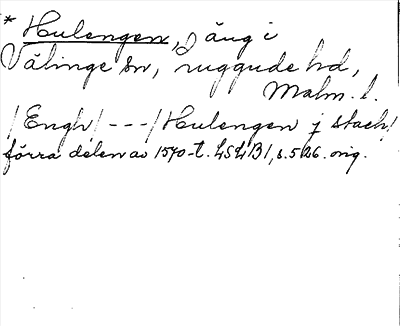 * Hulengen, j äng i
Välinge sn, ruggude hd,
Malm. l.
/Engh/ --- / Hulengen j stach/
förra delen av 1570-t. LSLB1, s. 526. orig.